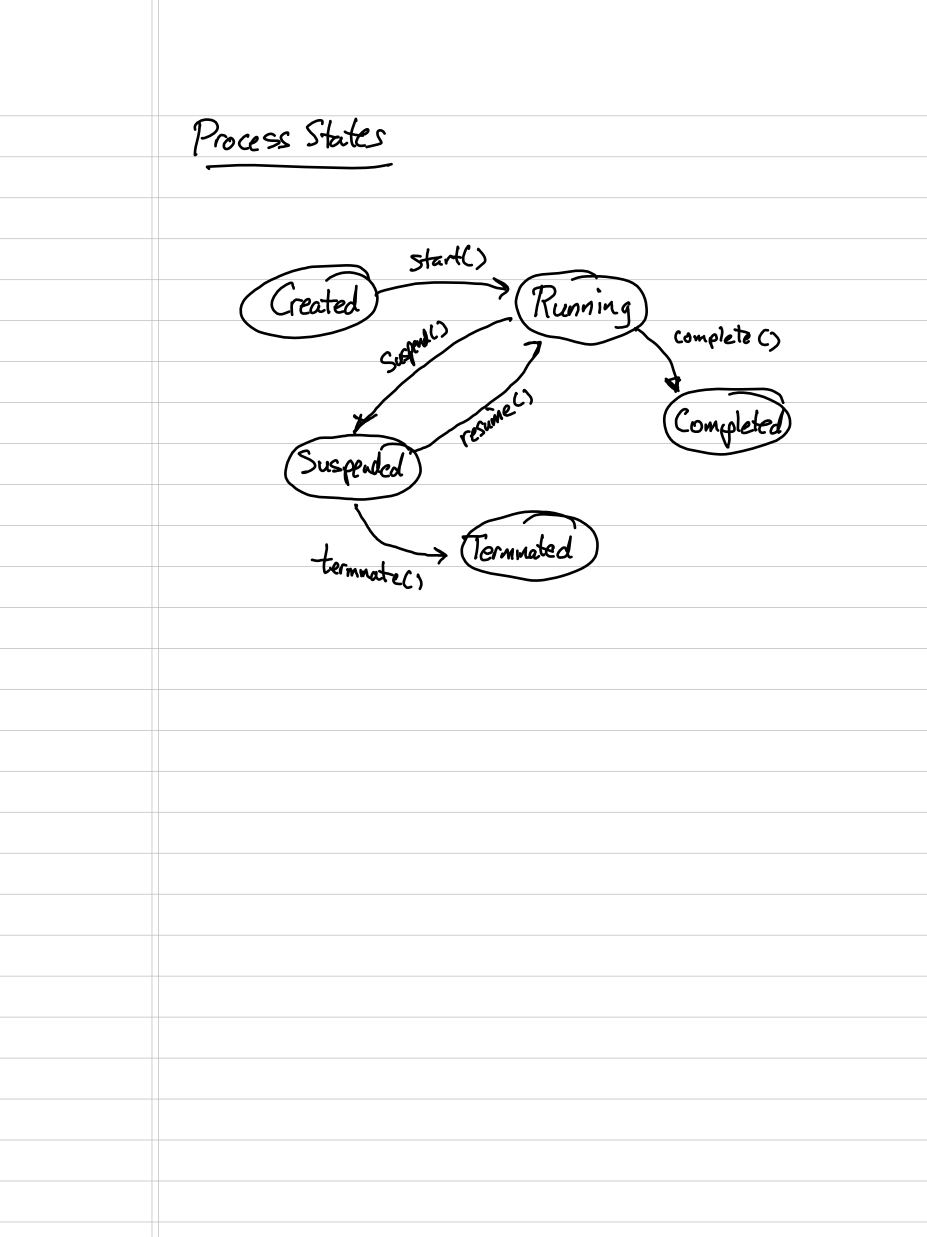 Process States
start()
Created
Running
suspend()
complete()
resume()
Completed
Suspended
Terminated
terminate()